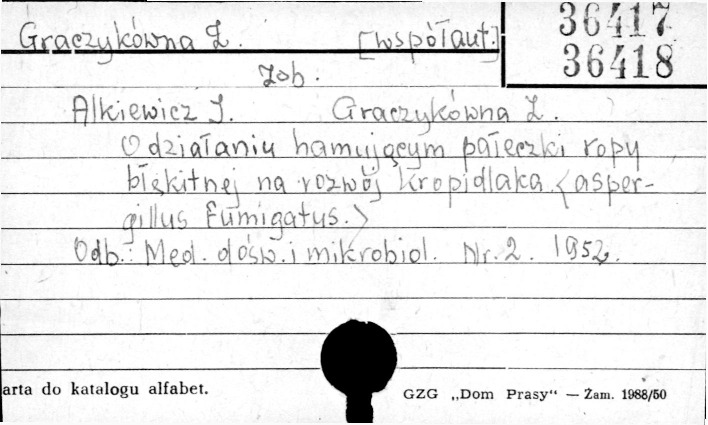 Graczykówna Z. [współaut.]
36417
36418
zob.
Alkiewicz J. Graczykówna Z.
O działaniu hamującym pałeczki ropy
błękitnej na rozwój Kropidlaka <asper-
gillus fumigatus.>
Odb.: Med. dośw. i mikrobiol. Nr. 2. 1952.
arta do katalogu alfabet.
GZG „Dom Prasy" — Zam. 1988/50